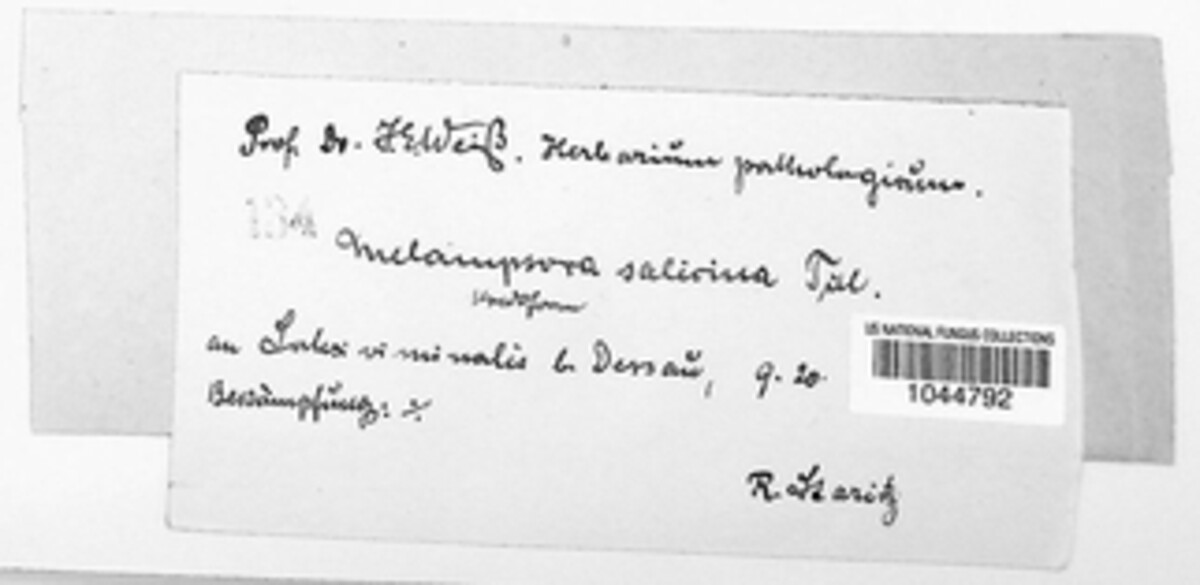 Prof. Dr. J. E. Weiß. Herbarium pathologicum.
134
Melampsora salicina Tul.
an Salix viminalis b. Dessau, 9. 20
Bekämpfung: ⁒
R. Staritz
US NATIONAL FUNGUS COLLECTIONS
1044792